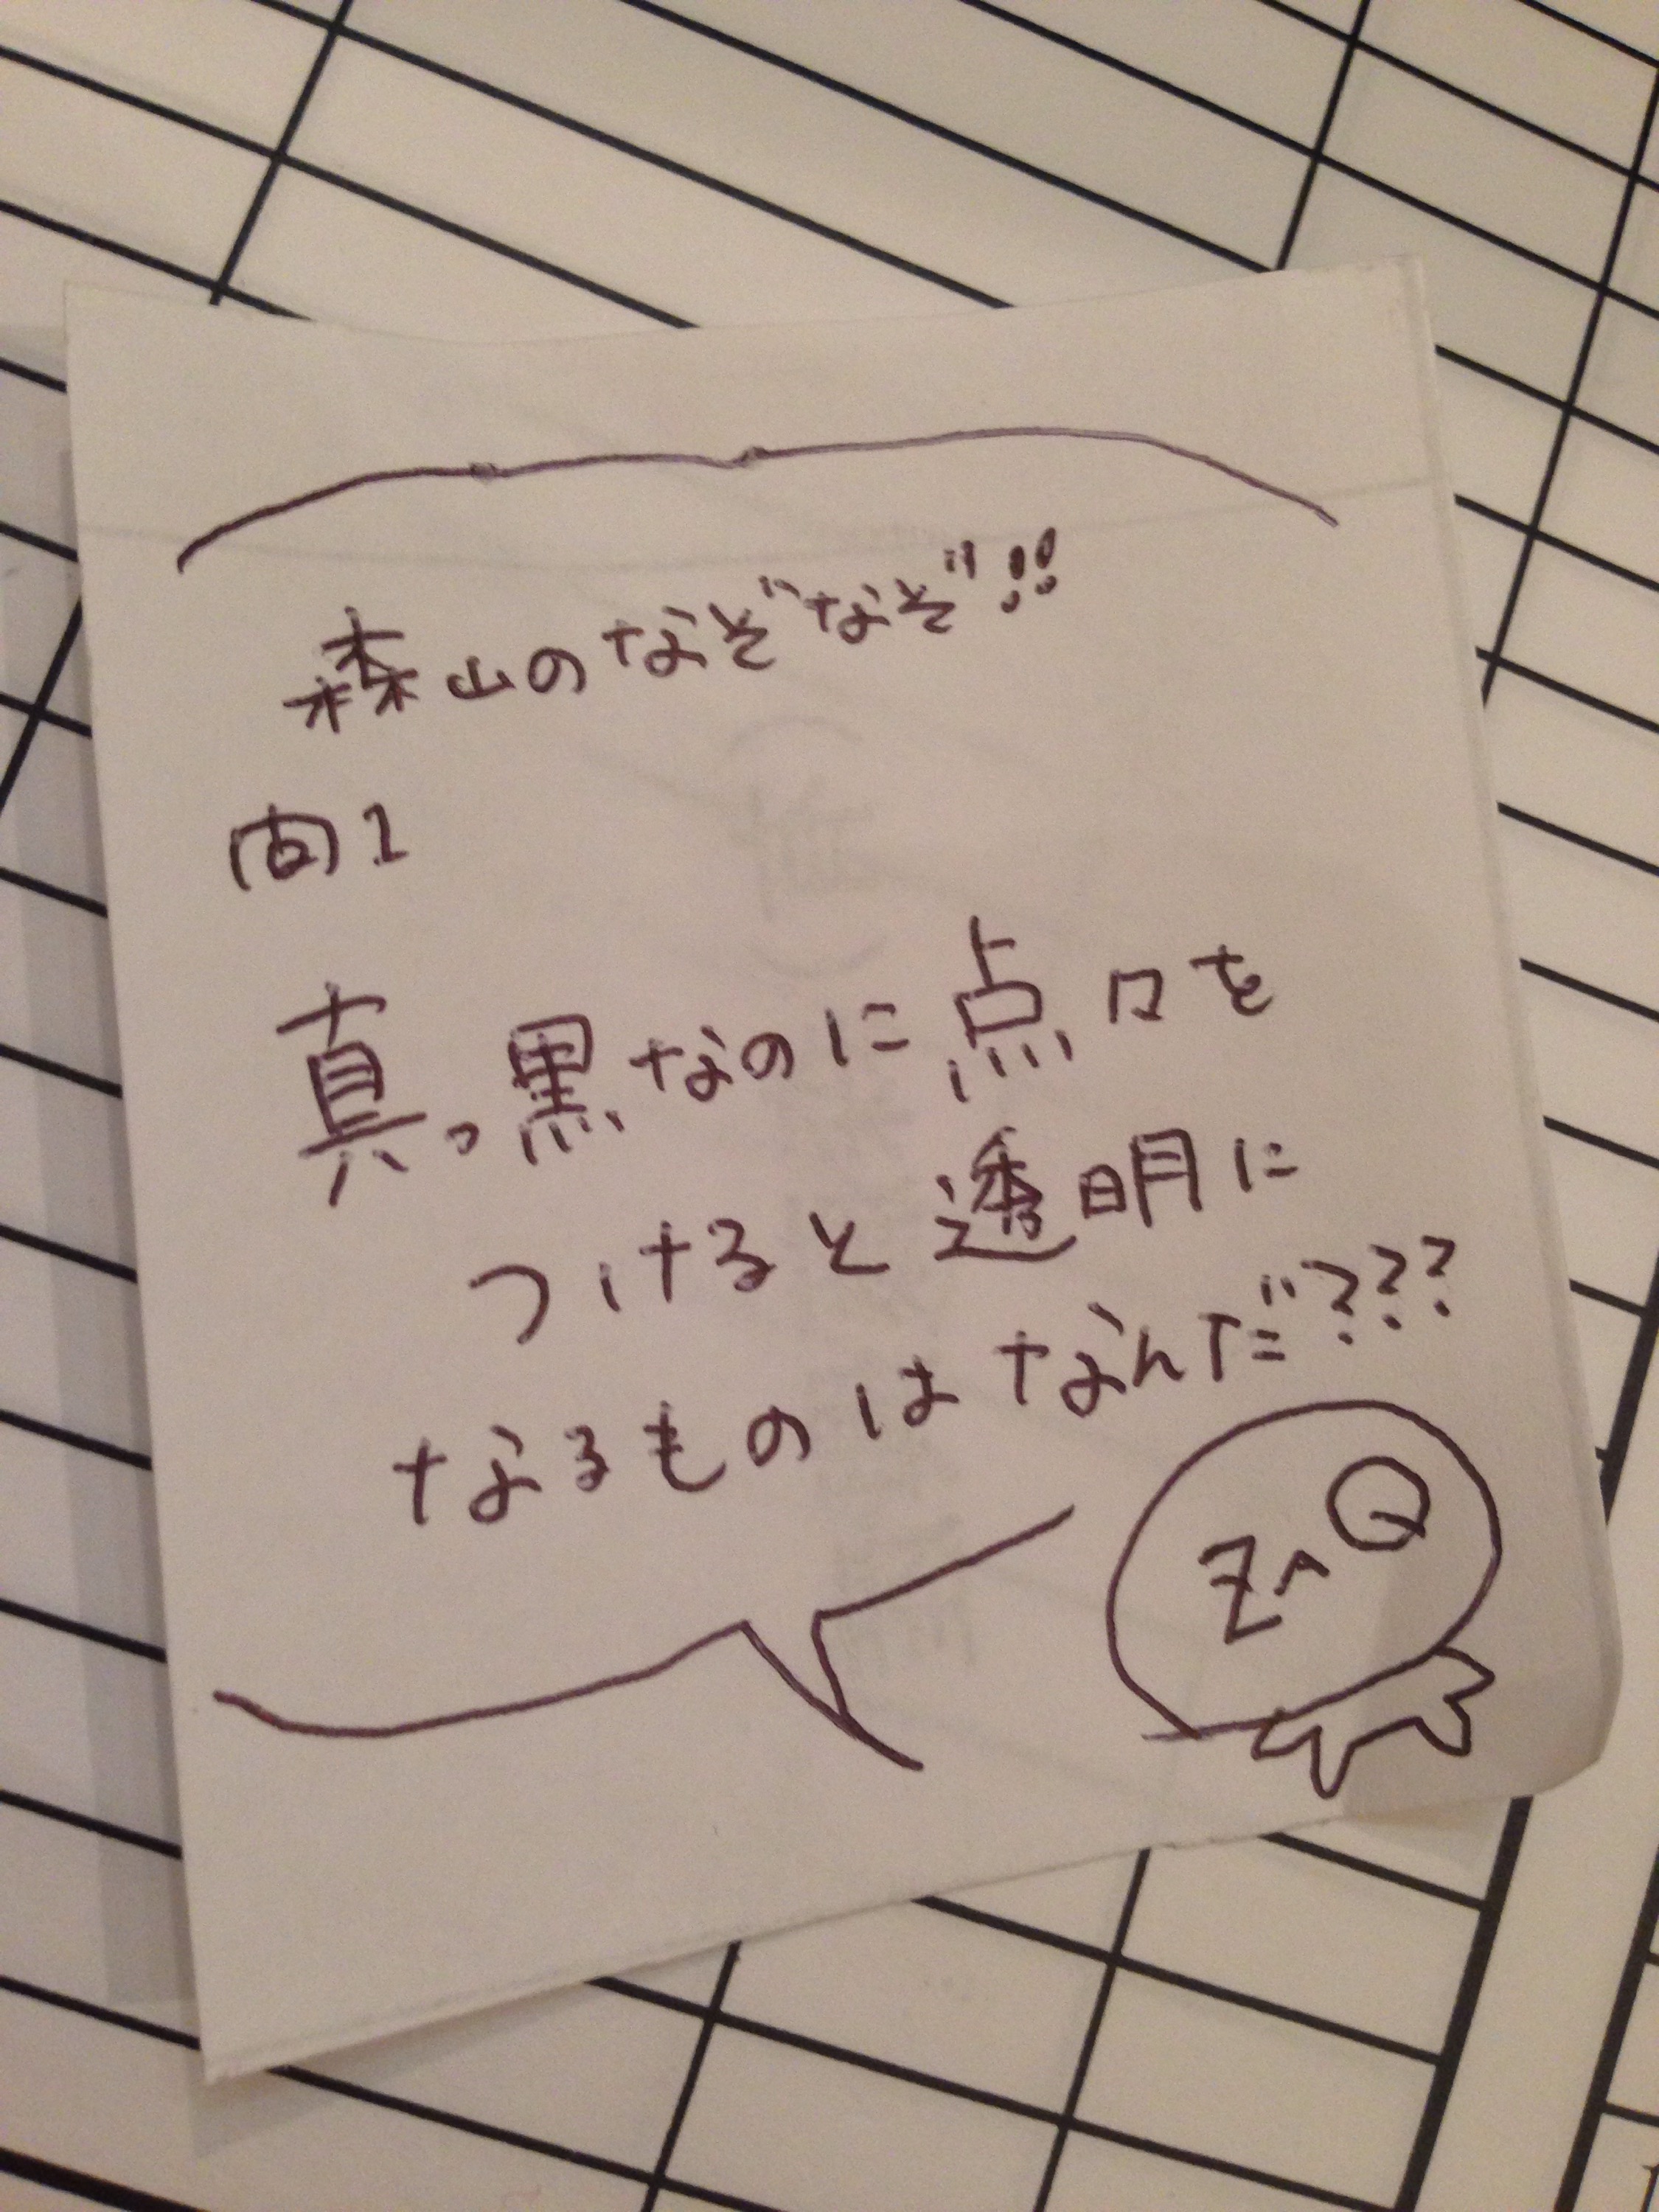 森山のなぞなぞ!!
問1
真っ黒なのに点々を
つけると透明に
なるものはなんだ???